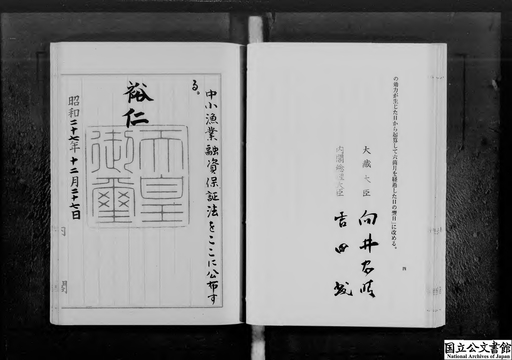 の効力が生じた日から起算して六箇月を経過した日の翌日」に改める。
四
大蔵大臣 向井忠晴
内閣総理大臣 吉田茂
中小漁業融資保証法をここに公布す
る。
裕仁
天皇
御璽
昭和二十七年十二月二十七日
内閣
国立公文書館
National Archives of Japan